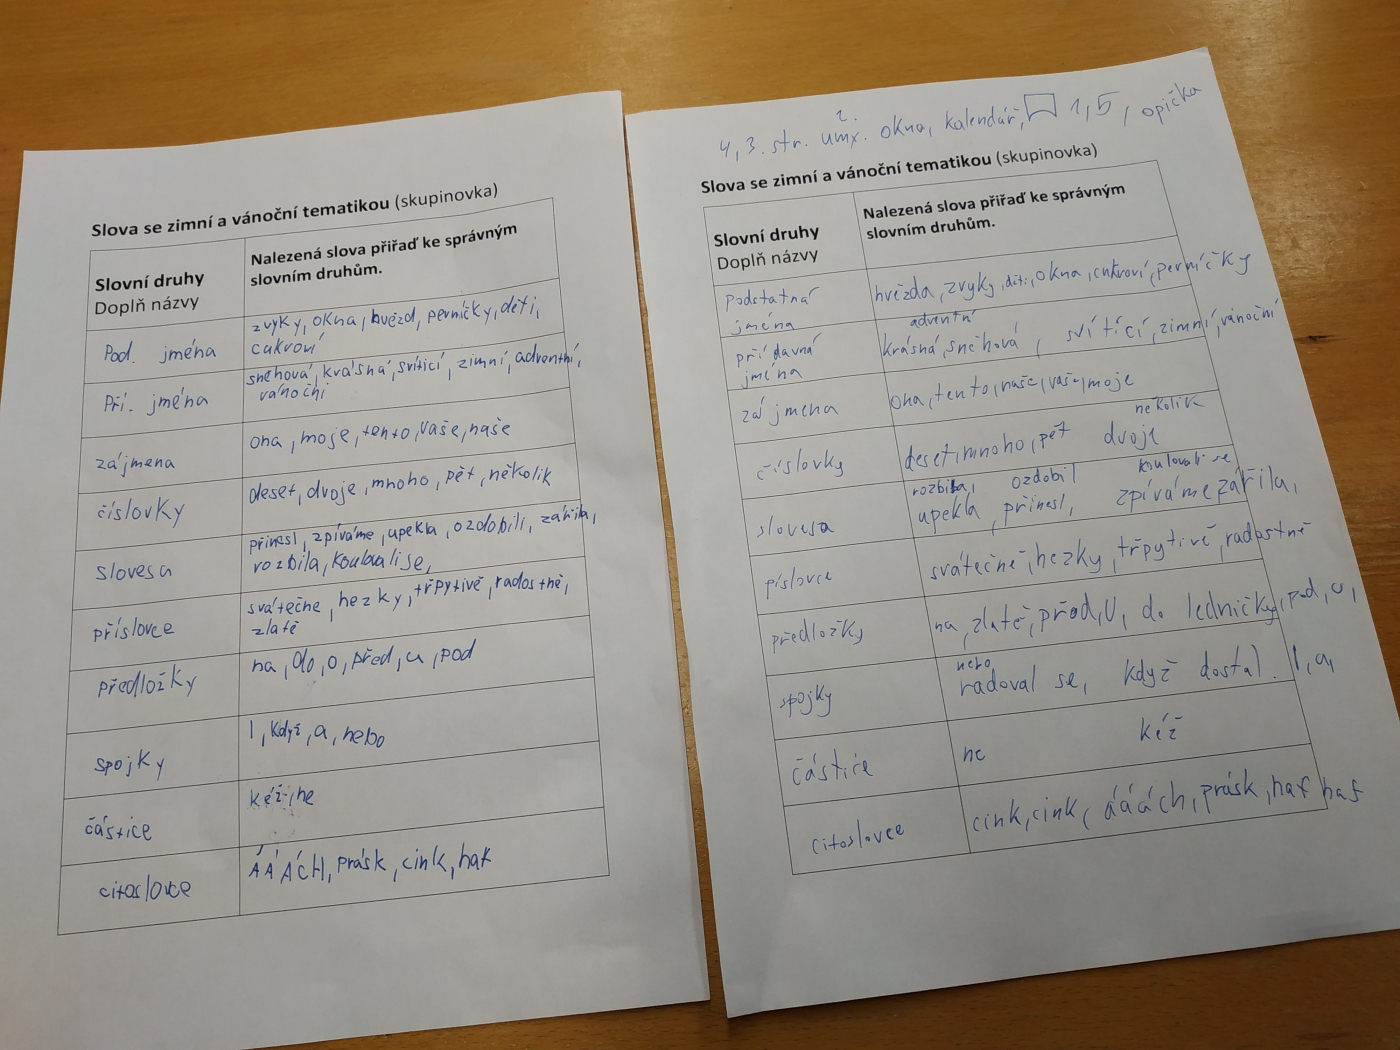 Slova se zimní a vánoční tematikou (skupinovka)
Slovní druhy
Doplň názvy
Nalezená slova přiřaď ke správným
slovním druhům.
Pod. jména
zvyky, okna, hvězd, perníčky, děti,
cukroví
Pří. jména
sněhová, krásná, svítící, zimní, adventní,
vánoční
zájmena
ona, moje, tento, vaše, naše
číslovky
deset, dvoje, mnoho, pět, několik
slovesa
přinesl, zpíváme, upekla, ozdobili, zářila,
rozbila, koulovali se,
příslovce
svátečne, hezky, třpytivě, radostně,
zlatě
předložky
na, do, o, před, u, pod
spojky
I, když, a, nebo
částice
kéž, ne
citoslovce
ÁÁÁCH, prásk, cink, haf
2.
4, 3. str. umx. okna, kalendář, 1, 5, opička
Slova se zimní a vánoční tematikou (skupinovka)
Slovní druhy
Doplň názvy
Nalezená slova přiřaď ke správným
slovním druhům.
Podstatnár
jména
hvězda, zvyky, děti, okna, cukroví, perníčky
přídavná
jména
adventní
krásná, sněhová, svítící, zimní, vánoční
zájmena
ona, tento, naše, vaše, moje
číslovky
několik
deset, mnoho, pět dvoje
slovesa
rozbila, ozdobil koulovali se
upekla, přinesl, zpíváme zářila,
píslovce
svátečně, hezky, třpytivě, radostně
předložky
na, zlatě, před, U, do ledničky, pod, u,
spojky
nebo
radoval se, když dostal. I, a,
částice
ne kéž
citoslovce
cink, cink, áááách, prásk, haf haf